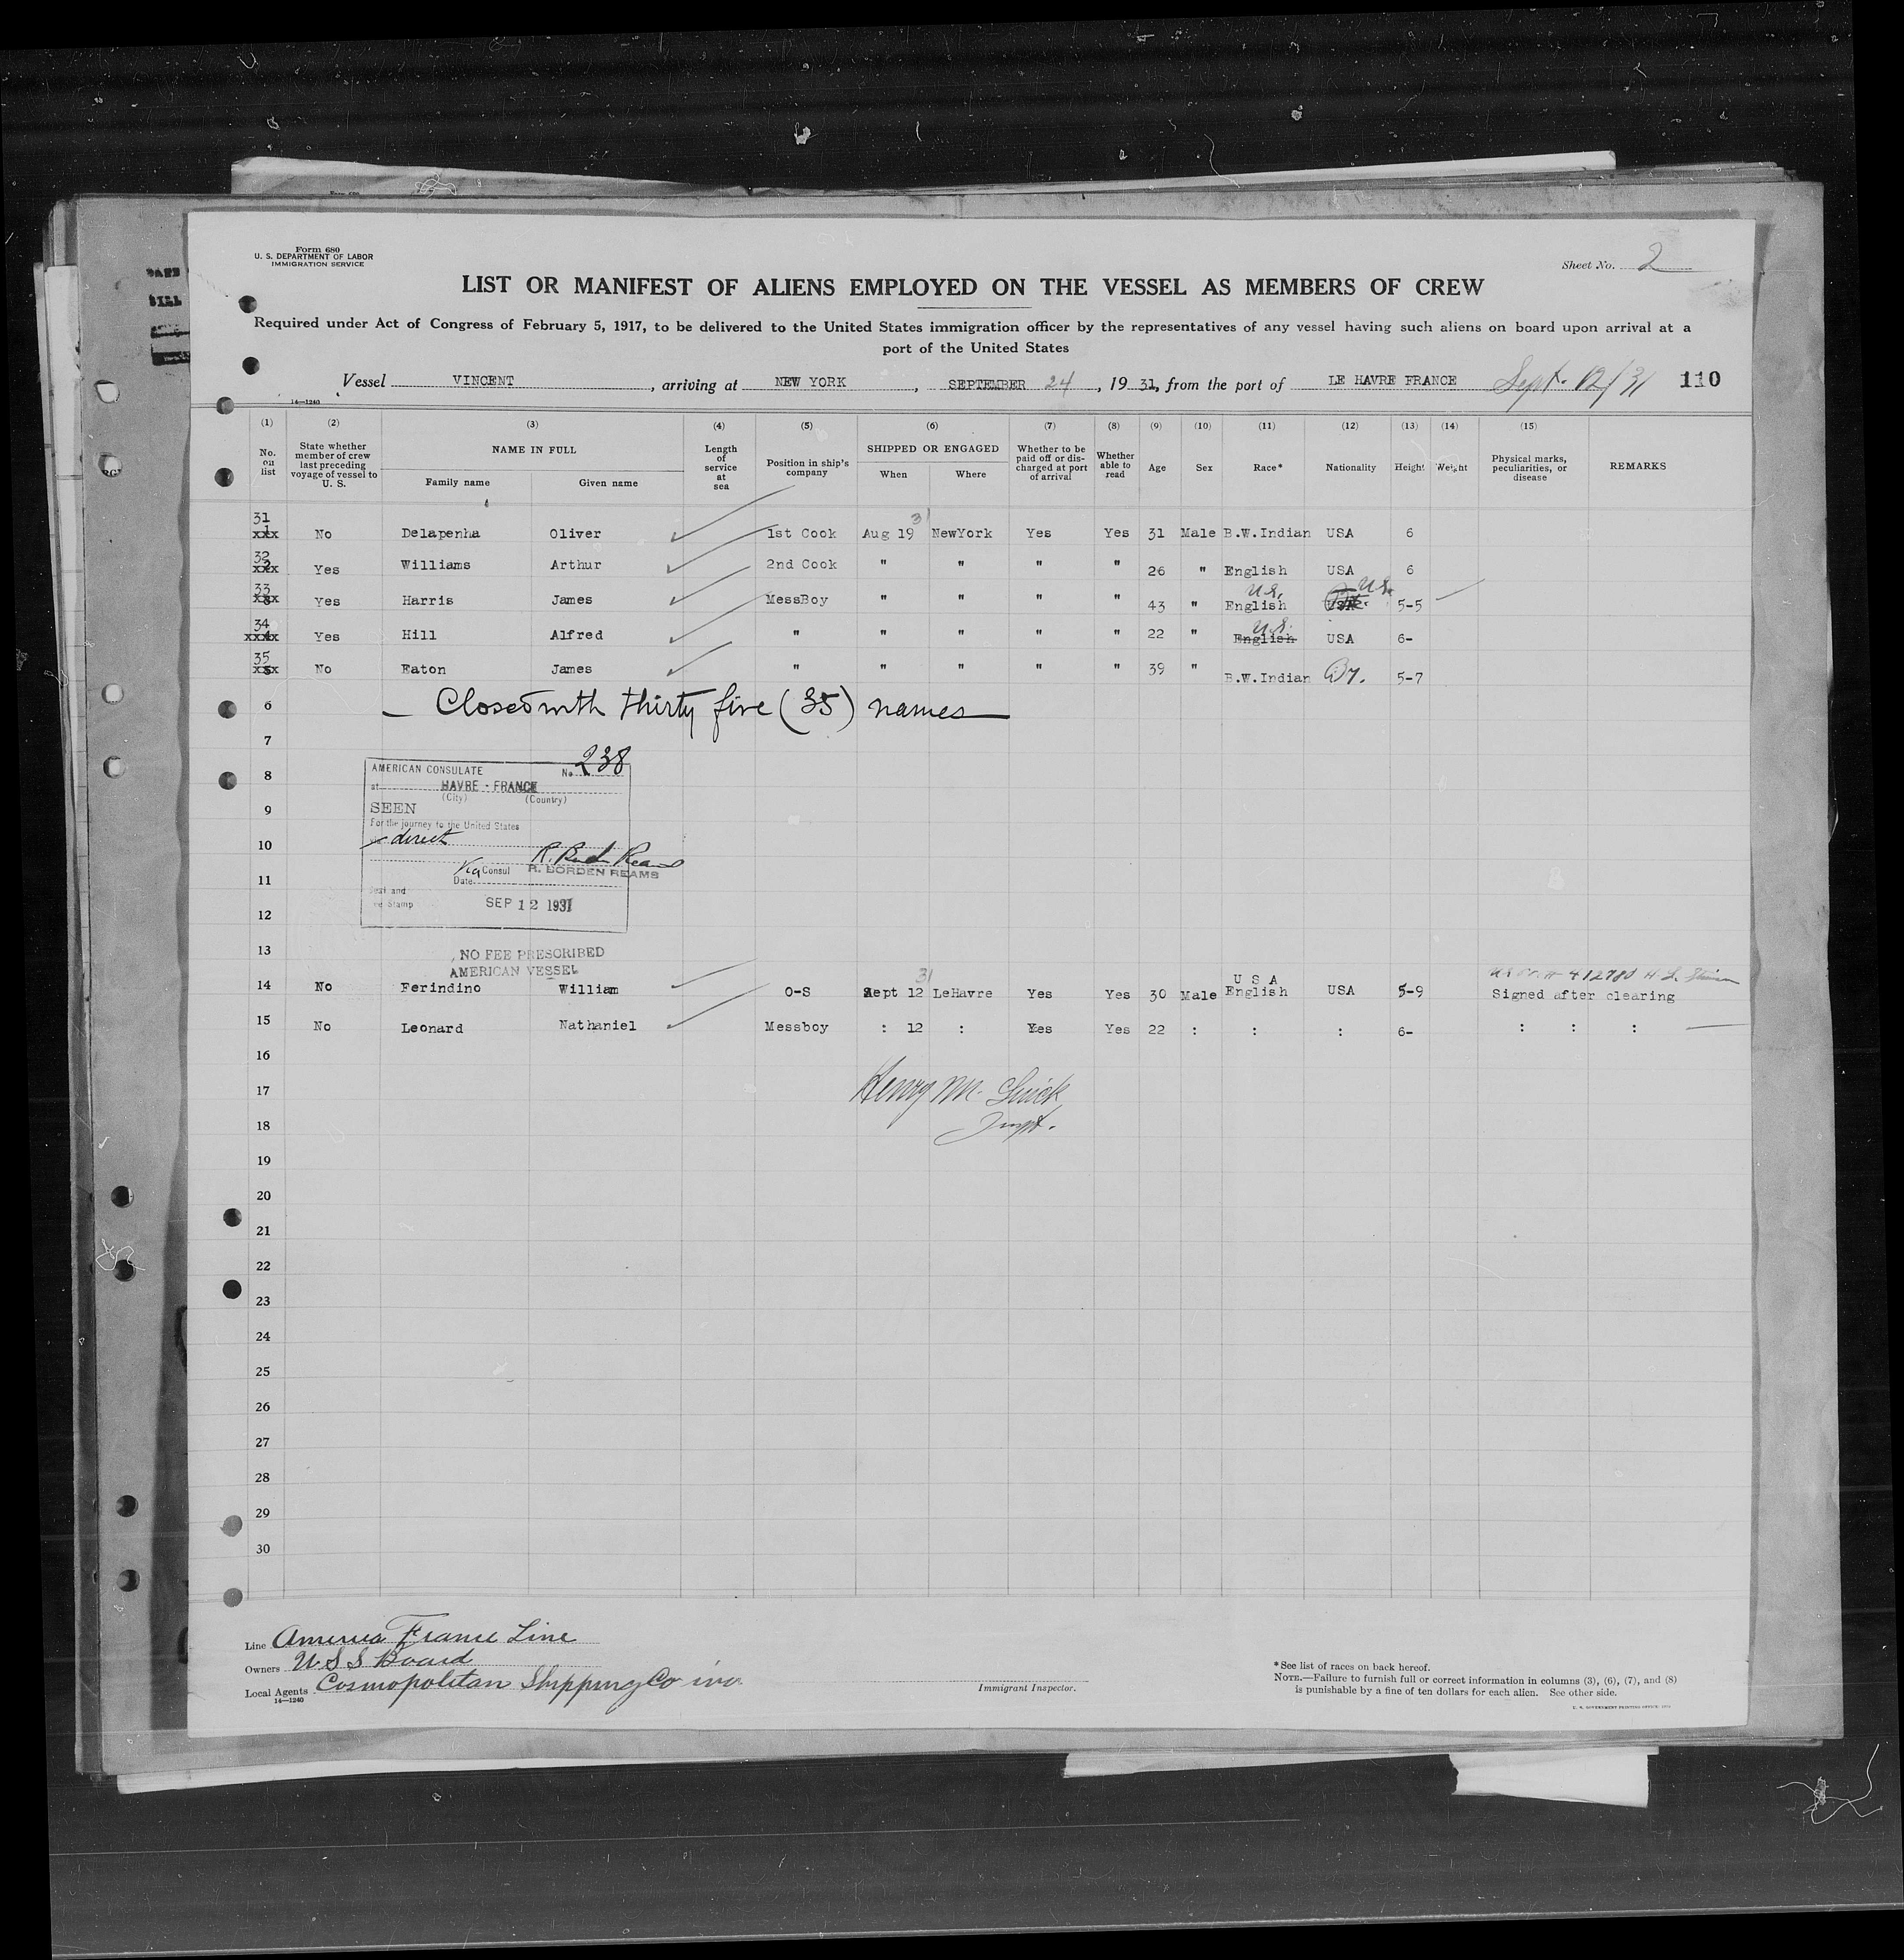 Form 680
U. S. DEPARTMENT OF LABOR
IMMIGRATION SERVICE
Sheet No. 2
LIST OR MANIFEST OF ALIENS EMPLOYED ON THE VESSEL AS MEMBERS OF CREW
Required under Act of Congress of February 5, 1917, to be delivered to the United States immigration officer by the representatives of any vessel having such aliens on board upon arrival at a
port of the United States
Vessel VINCENT, arriving at NEW YORK, SEPTEMBER 24, 19 31, from the port of LE HAVRE FRANCE Sept. 12/31 110
14—1240
(1) (2) (3) (4) (5) (6) (7) (8) (9) (10) (11) (12) (13) (14) (15)
No. on list State whether member of crew last preceding voyage of vessel to U. S. NAME IN FULL Family name Given name Length of service at sea Position in ship's company SHIPPED OR ENGAGED When Where Whether to be paid off or discharged at port of arrival Whether able to read Age Sex Race* Nationality Height Weight Physical marks, peculiarities, or disease REMARKS
31 No Delapenha Oliver 1st Cook Aug 19 31 NewYork Yes Yes 31 Male B.W.Indian USA 6
32 Yes Williams Arthur 2nd Cook " " " " 26 " English USA 6
33 Yes Harris James MessBoy " " " " 43 " English U.S. U.S. 5-5
34 Yes Hill Alfred " " " " " 22 " English U.S. USA 6-
35 No Eaton James " " " " " 39 " B.W.Indian Br. 5-7
6 — Closed with thirty five (35) names —
7
8
9
10
11
12
13
AMERICAN CONSULATE No. 238
at HAVRE - FRANCE
(City) (Country)
SEEN
For the journey to the United States
via direct
Vice Consul R. BORDEN REAMS
Date
Seal and
Fee Stamp SEP 12 1931
NO FEE PRESCRIBED
AMERICAN VESSEL
14 No Ferindino William O-S Sept 12 31 LeHavre Yes Yes 30 Male U S A English USA 5-9 Signed after clearing
15 No Leonard Nathaniel Messboy : 12 : Yes Yes 22 : : : 6- : : :
16
17 Henry M.
18 Inspt.
19
20
21
22
23
24
25
26
27
28
29
30
Line America France Line
Owners U S S Board
Local Agents Cosmopolitan Shipping Co inc
14—1240
Immigrant Inspector.
*See list of races on back hereof.
NOTE.—Failure to furnish full or correct information in columns (3), (6), (7), and (8)
is punishable by a fine of ten dollars for each alien. See other side.